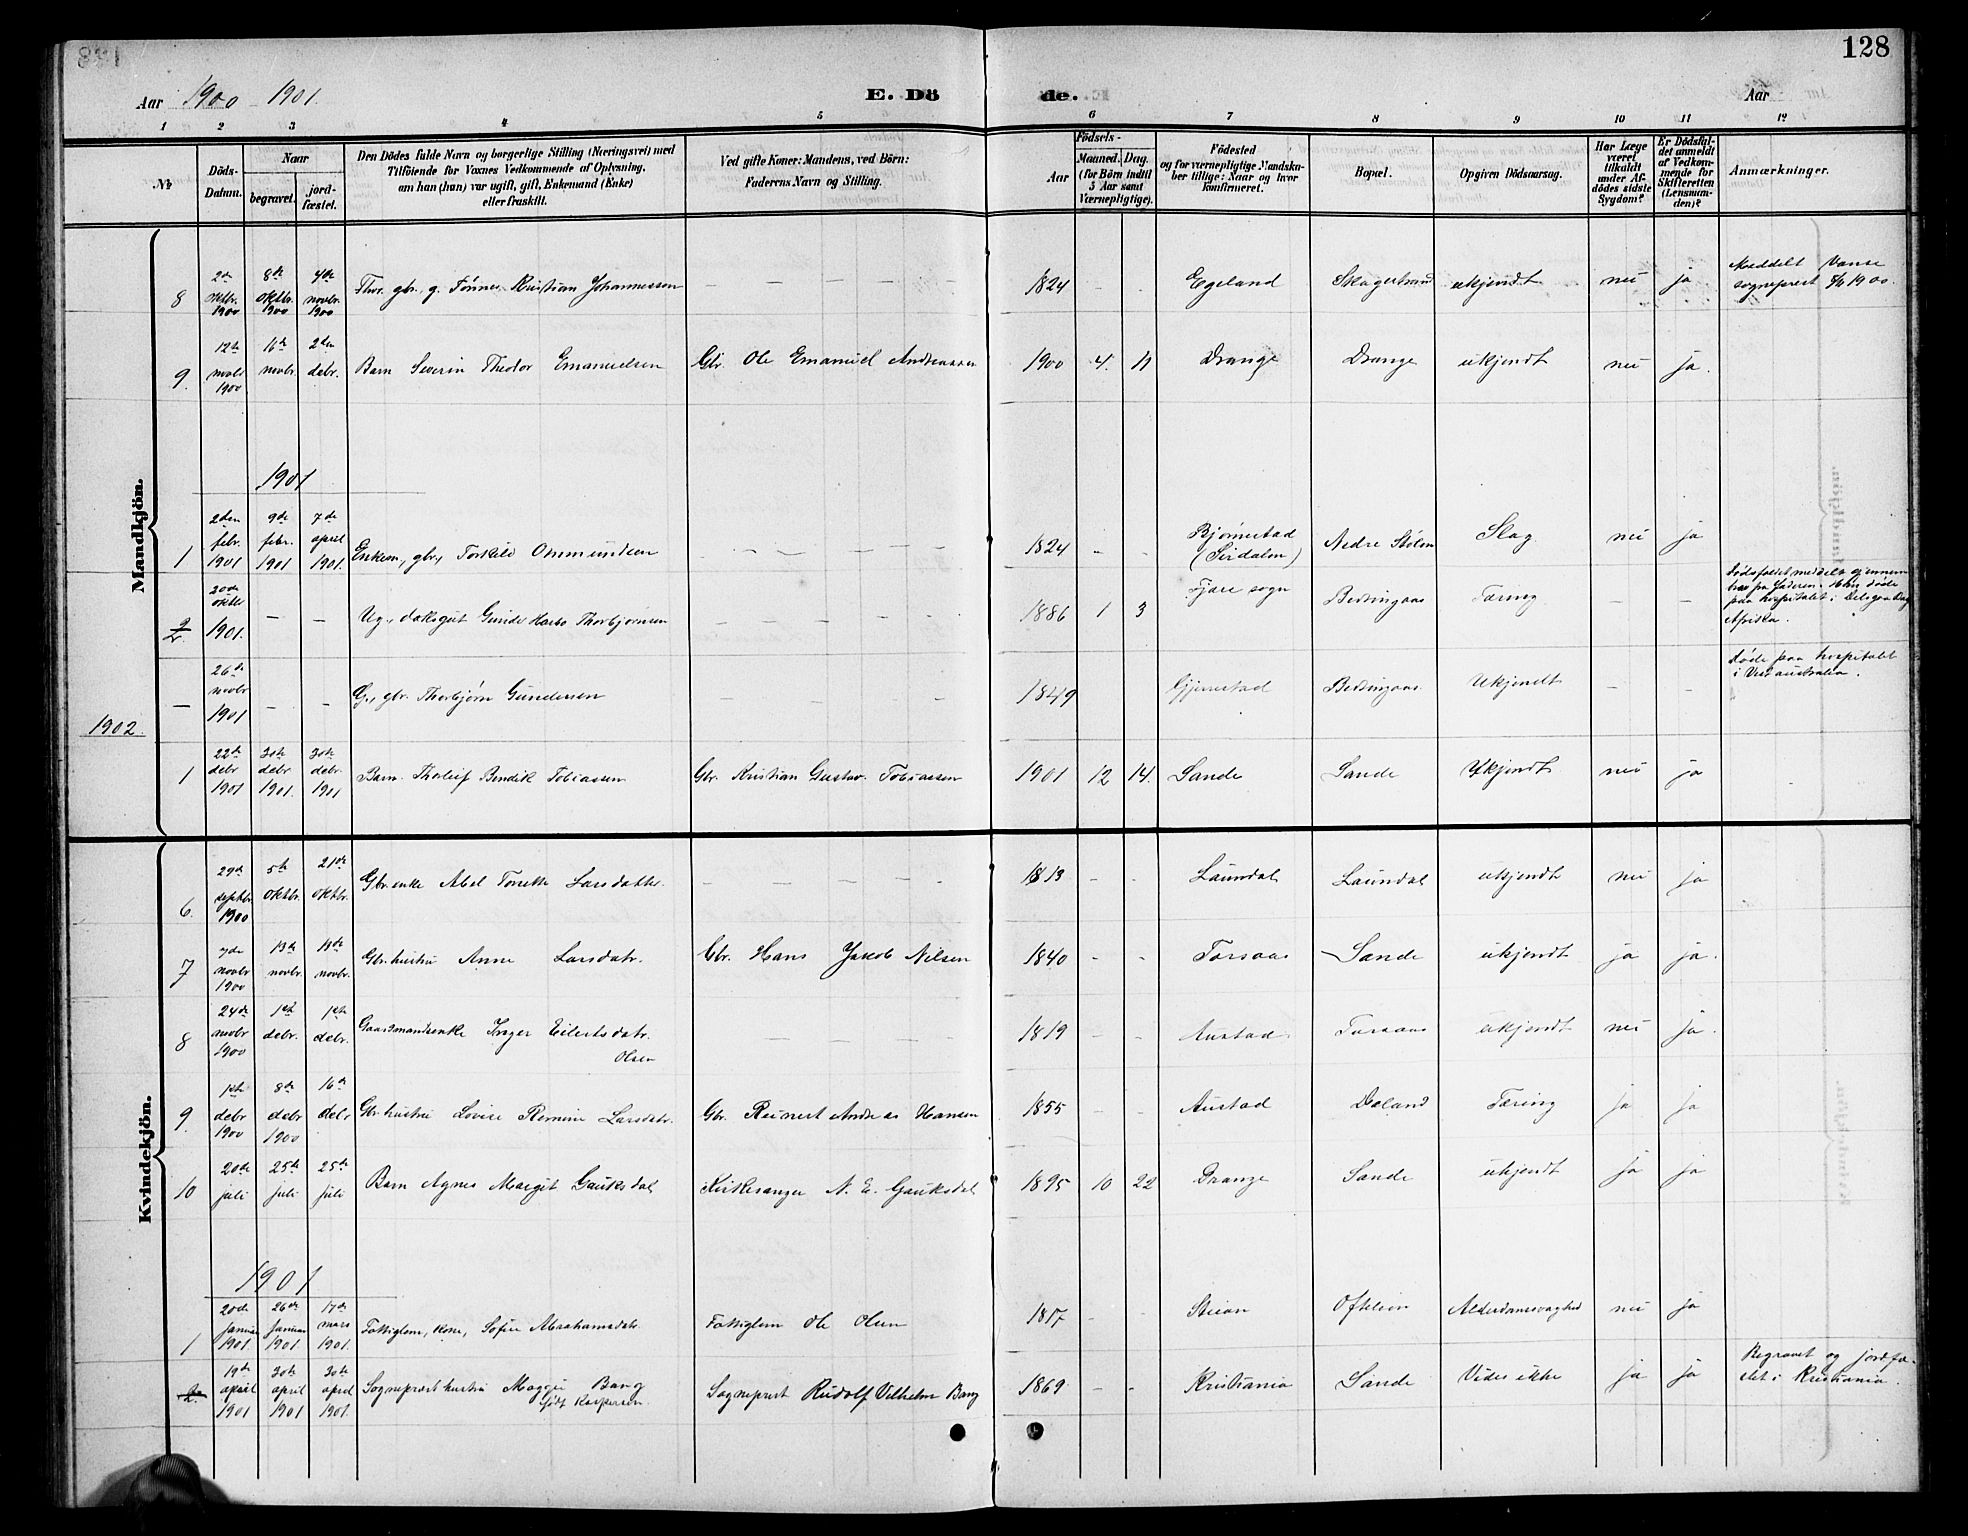 128
Aar 1900 - 1901. E. Dö de. Aar
1 2 3 4 5 6 7 8 9 10 11 12
№ Döds-Datum. Naar begravet. jord-fæstet. Den Dödes fulde Navn og borgerlige Stilling (Næringsvei) med Tilföiende for Voxnes Vedkommende af Oplysning, om han (hun) var ugift, gift, Enkemand (Enke) eller fraskilt. Ved gifte Koner: Mandens, ved Börn: Faderens Navn og Stilling. Födsels- Aar Maaned. Dag. (for Börn indtil 5 Aar samt Værnepligtige). Födested og for værnepligtige Mandskaber tillige: Naar og hvor konfirmeret. Bopæl. Opgiven Dödsaarsag. Har Læge været tilkaldt under Afdödes sidste Sygdom? Er Dödsfaldet anmeldt af Vedkommende for Skifteretten (Lensmanden)? Anmærkninger.
Mandkjön.
8 2de oktbr. 1900 8de oktbr. 1900 4de novbr. 1900 Kristian Johannessen - - - - 1824 - - Egeland ukjendt nei ja Meddelt Vanse sogneprest
9. 12te novbr 1900 16de novbr. 2den debr. Barn Severin Theodor Emanuelsen Gbr. Ole Emanuel Andreassen 1900 4. 11 Drange Drange ukjendt nei ja.
1901
1 2den febr. 1901 9de febr. 1901 7de april 1901. Enkem., gbr., Torkild Ommundsen - - - - 1824 - - Bjørnestad (Sirdalen) Nedre Stølen Slag nei ja
2 20de oktbr 1901. - - Ug., Gunder Thorbjørnsen - - - - 1886 1 3 Fjære sogn Tæring - - paa hospitalet i Afrika.
- 26de novbr 1901 - - G., gbr. Thorbjørn Gundersen - - - - 1849 Gjerrestad Ukjendt - - døde paa hospitalet i Vestaustralia.
1902.
1 22de debr 1901 30te debr 1901. 30te debr. 1901 Barn Thorleif Bendik Tobiassen Gbr. Kristian Gustav Tobiassen 1901 12 14. Sande Sande Ukjendt nei ja
Kvindekjön.
6. 29de septbr 1900 5te oktbr. 21de oktbr. Gbr.enke Abel Tonette Larsdatter. - - - - 1813 - - Laundal Laundal ukjendt nei ja
7 7de novbr 1900 13de novbr. 18de novbr. Gbr.hustru Anne Larsdatr. Gbr. Hans Jakob Nilsen 1840 - - Torsaas Sande ukjendt ja ja.
8 24de novbr 1900 1ste debr. 1ste debr. Gaardmandsenke Inger Eilertsdatr. Olsen - - - - 1819 - - Austad Torsaas ukjendt nei ja.
9. 1ste debr 1900 8de debr 1900 16de debr Gbr.hustru Lovise Larsdatr. Gbr. Reinert Andreas Hansen 1855 - - Austad Doland Tæring ja ja
10 20de juli 25de juli 25de juli Barn Agnes Margit Gauksdal Kirkesanger N. E. Gauksdal 1895 10 22 Drange Sande ukjendt ja ja
1901
1 20de Januar 1901. 26de Januar 1901. 17de mars 1901. Fattiglem, kone, Sofie Abrahamsdatr. Fattiglem Ole Olsen 1817 - Steien Oftebro Alderdomssvaghed nei ja
2. 19de april 1901 30te april 1901 30te april 1901. Sogneprest hustru Maggie Bang født Kaspersen. Sogneprest Rudolf Vilhelm Bang 1869 - - Kristiania Sande Vides ikke ja ja Begravet og jordfæstet i Kristiania.